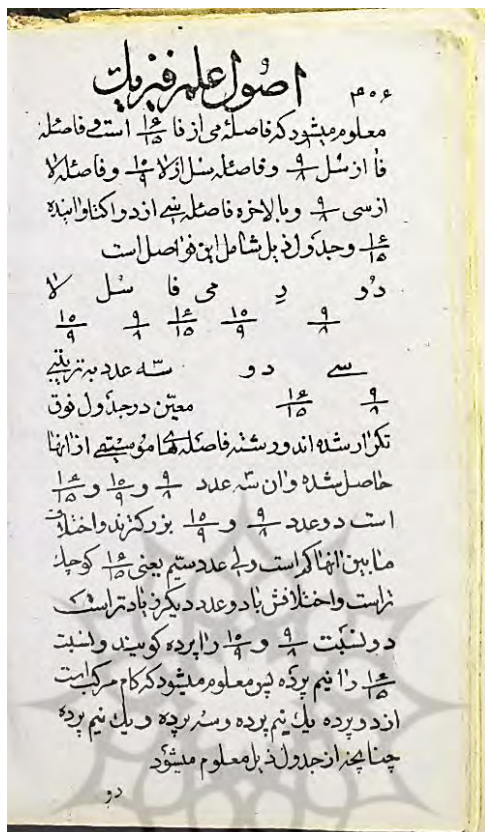 ۴۰۶ اصول علم فیزیک
معلوم میشود که فاصلهٔ می از فا ۱۶/۱۵ است و فاصلهٔ
فا از سُل ۹/۸ و فاصلهٔ سل از لا ۱۰/۹ و فاصلهٔ لا
از سی ۹/۸ و بالاخره فاصلهٔ سی از دو اکتاو اینده
۱۶/۱۵ و جدول ذیل شامل این فواصل است
دُو رِ می فا سُل لا
۹/۸ ۱۰/۹ ۱۶/۱۵ ۹/۸ ۱۰/۹
سی دو سه عدد به ترتیبی
۹/۸ ۱۶/۱۵ معیّن در جدول فوق
تکرار شده اند و رشتهٔ فاصله های موسیقی از انها
حاصل شده و ان سه عدد ۹/۸ و ۱۰/۹ و ۱۶/۱۵
است دو عدد ۹/۸ و ۱۰/۹ بزرکترند و اختلاف
مابین انها کم است ولی عدد سیّم یعنی ۱۶/۱۵ کوچک
تر است و اختلافش با دو عدد دیکر زیادتر است
دو نسبت ۹/۸ و ۱۰/۹ را پرده کویند و نسبت
۱۶/۱۵ را نیم پرده پس معلوم میشود که کام مرکب است
از دو پرده یک نیم پرده و سه پرده و یک نیم پرده
چنانچه از جدول ذیل معلوم میشود
دو